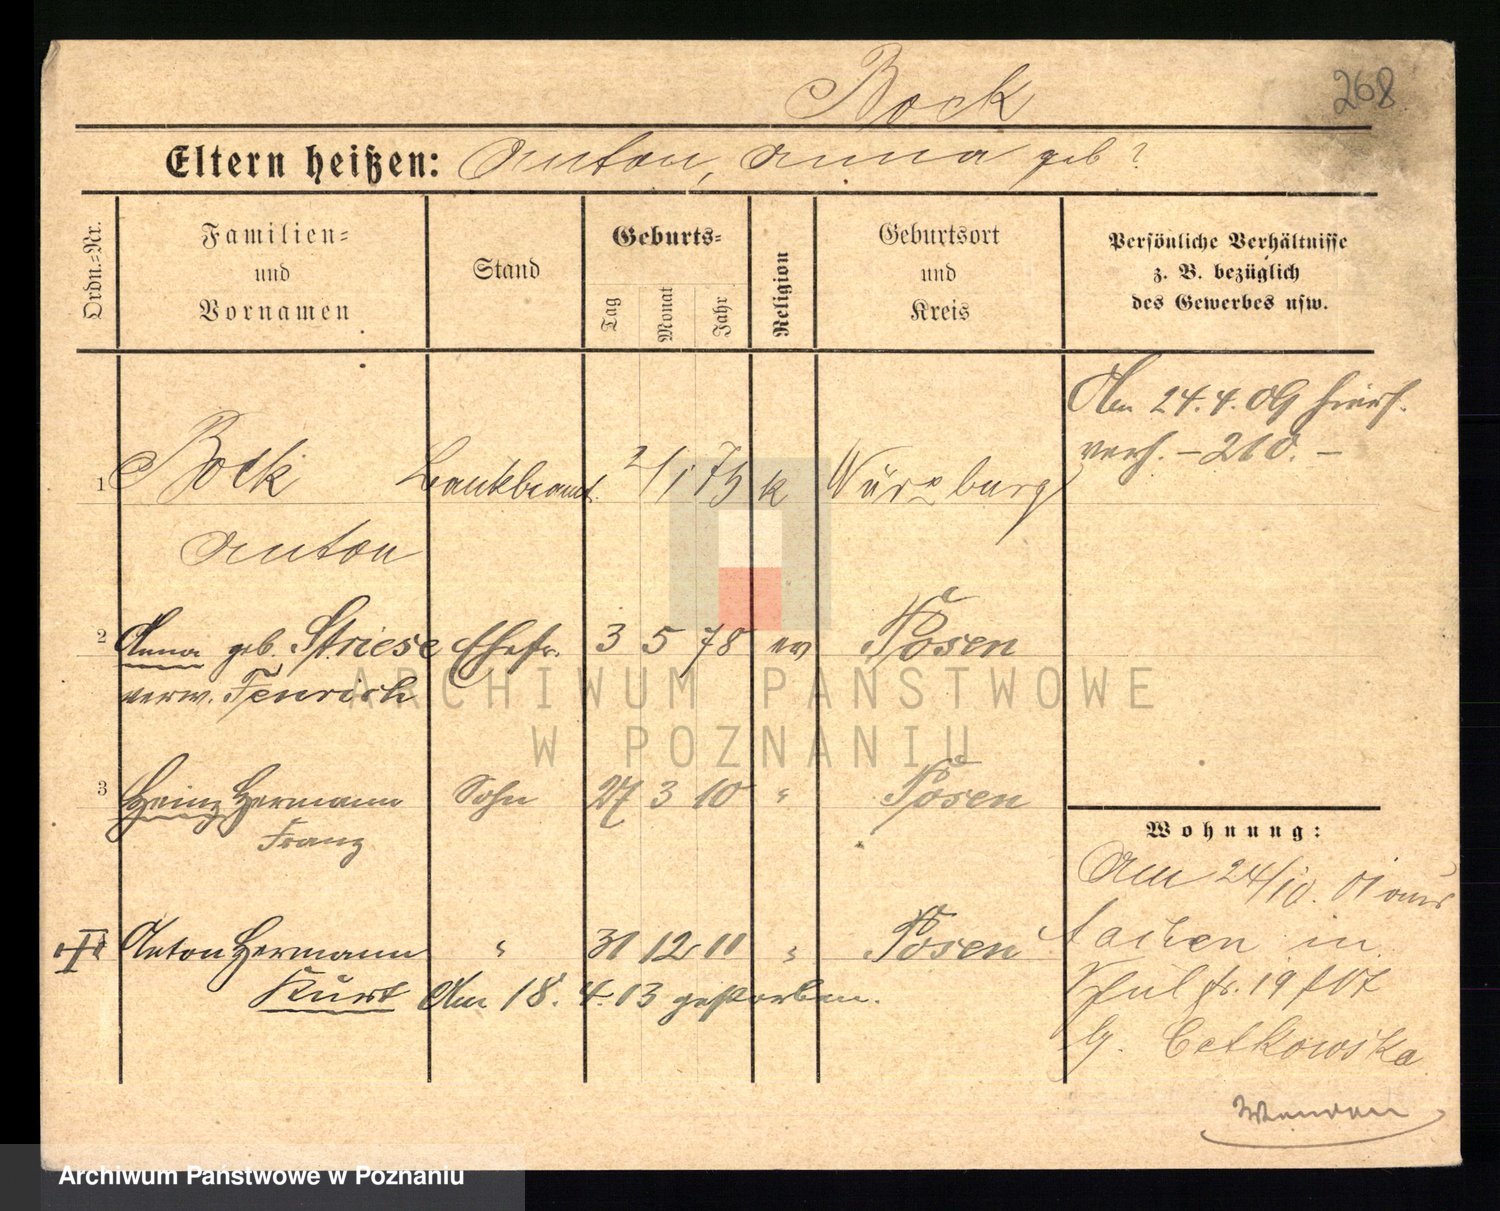 268
Bock
Eltern heißen: Anton, Anna geb?
Ordn.=Nr.
Familien=
und
Vornamen
Stand
Geburts=
Tag
Monat
Jahr
Religion
Geburtsort
und
Kreis
Persönliche Verhältnisse
z. B. bezüglich
des Gewerbes usw.
Am 24.4.09
verh. - 210. -
1 Bock Bankbeamt. 2/1 75 k Würzburg
Anton
2 Anna geb. Striese Ehefr. 3 5 78 ev Posen
verw. Fenrich
3 Heinz Hermann Sohn 27 3 10 " Posen
Franz
Anton Hermann " 31 12 11 " Posen
Kurt Am 18. 4. 13 gestorben.
Wohnung:
Am 24/10. 01 aus
Aachen in
19
Cetkowska
Wenden
ARCHIWUM PAŃSTWOWE
W POZNANIU
Archiwum Państwowe w Poznaniu